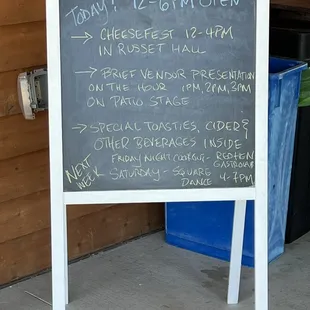 TODAY! 12-6PM OPEN
→ CHEESEFEST 12-4PM
IN RUSSET HALL
→ BRIEF VENDOR PRESENTATION
ON THE HOUR 1PM, 2PM, 3PM
ON PATIO STAGE
→ SPECIAL TOASTIES, CIDER &
OTHER BEVERAGES INSIDE
NEXT WEEK
FRIDAY NIGHT COOKOUT - RED HEN
GASTROPUB
SATURDAY - SQUARE
DANCE 4-7PM